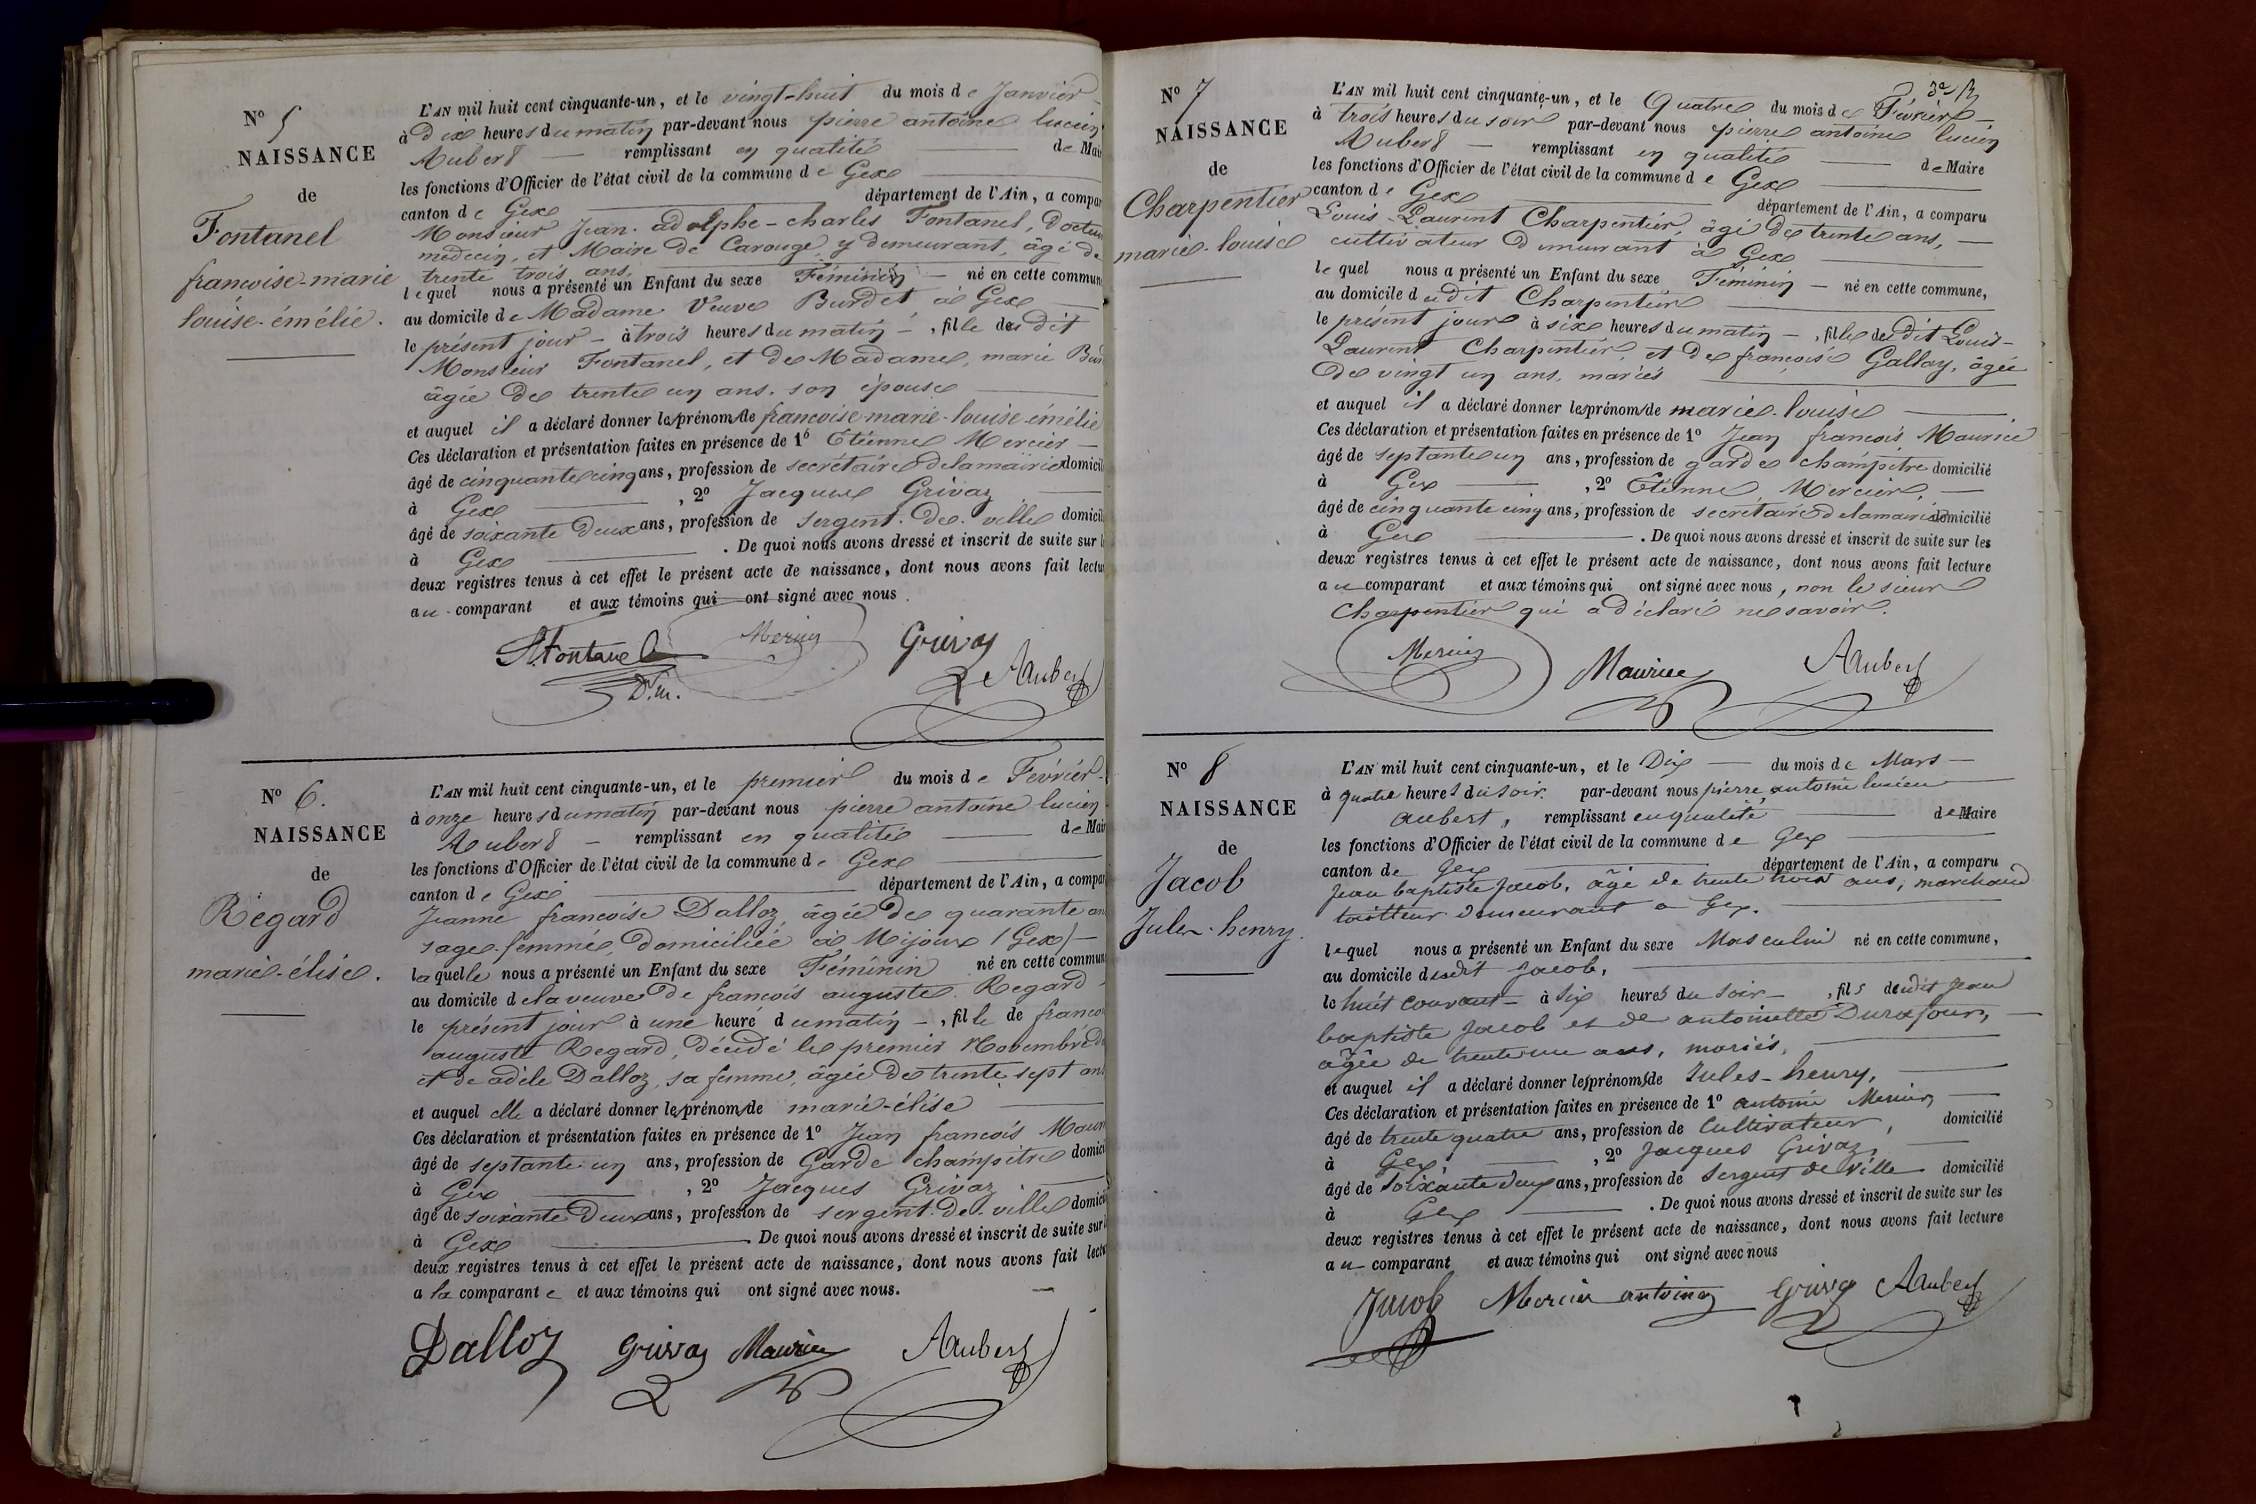 Nº 5
NAISSANCE
de
Fontanel
francoise-marie
louise-émélie.
L'AN mil huit cent cinquante-un, et le vingt-huit du mois de Janvier
à dix heures du matin par-devant nous pierre antoine lucien
Aubert — remplissant en qualité — de Mai
les fonctions d'Officier de l'état civil de la commune de Gex
canton de Gex — département de l'Ain, a compar
Monsieur Jean-adolphe-charles Fontanel, Docteur
médecin, et Maire de Carouge y demeurant, âgé de
trente trois ans,
lequel nous a présenté un Enfant du sexe Féminin — né en cette commun
au domicile de Madame Veuve Burdet à Gex
le présent jour — à trois heures du matin —, fille du dit
Monsieur Fontanel, et de Madame, marie Bur
âgée de trente un ans. son épouse
et auquel il a déclaré donner les prénoms de francoise-marie-louise-émélie
Ces déclaration et présentation faites en présence de 1º Etienne Mercier —
âgé de cinquante cinq ans, profession de secrétaire de la mairie domicil
à Gex — , 2º Jacques Grivaz
âgé de soixante deux ans, profession de sergent de ville domicil
à Gex — . De quoi nous avons dressé et inscrit de suite sur l
deux registres tenus à cet effet le présent acte de naissance, dont nous avons fait lectu
au comparant et aux témoins qui ont signé avec nous.
A. Fontanel Mercier Grivaz
D. m. AAubert
Nº 6.
NAISSANCE
de
Regard
marie-élise.
L'AN mil huit cent cinquante-un, et le premier du mois de Février
à onze heures du matin par-devant nous pierre antoine lucien
Aubert — remplissant en qualité — de Mair
les fonctions d'Officier de l'état civil de la commune de Gex
canton de Gex — département de l'Ain, a compar
Jeanne francoise Dalloz, âgée de quarante an
sage-femme, domiciliée à Mijoux (Gex) —
laquelle nous a présenté un Enfant du sexe Féminin né en cette commun
au domicile de la veuve de francois auguste Regard
le présent jour à une heure du matin —, fille de francoi
auguste Regard, décédé le premier Novembre d
et de adèle Dalloz, sa femme, âgée de trente sept ans
et auquel elle a déclaré donner les prénoms de marie-élise
Ces déclaration et présentation faites en présence de 1º Jean francois Mauri
âgé de septante un ans, profession de Garde champêtre domici
à Gex — , 2º Jacques Grivaz
âgé de soixante deux ans, profession de sergent de ville domici
à Gex — . De quoi nous avons dressé et inscrit de suite sur l
deux registres tenus à cet effet le présent acte de naissance, dont nous avons fait lectu
a la comparante et aux témoins qui ont signé avec nous. —
Dalloz Grivaz Maurice AAubert
Nº 7
NAISSANCE
de
Charpentier
marie-louise
L'AN mil huit cent cinquante-un, et le Quatre du mois de Février —
à trois heures du soir par-devant nous pierre antoine lucien
Aubert — remplissant en qualité — de Maire
les fonctions d'Officier de l'état civil de la commune de Gex
canton de Gex — département de l'Ain, a comparu
Louis-Laurent Charpentier, âgé de trente ans, —
cultivateur demeurant à Gex
lequel nous a présenté un Enfant du sexe Féminin — né en cette commune,
au domicile du dit Charpentier
le présent jour à six heures du matin —, fille du dit Louis-
Laurent Charpentier, et de françoise Gallay, âgée
de vingt un ans, mariés
et auquel il a déclaré donner les prénoms de marie-louise
Ces déclaration et présentation faites en présence de 1º Jean francois Maurice
âgé de septante un ans, profession de garde champêtre domicilié
à Gex — , 2º Etienne Mercier, —
âgé de cinquante cinq ans, profession de secrétaire de la mairie domicilié
à Gex — . De quoi nous avons dressé et inscrit de suite sur les
deux registres tenus à cet effet le présent acte de naissance, dont nous avons fait lecture
au comparant et aux témoins qui ont signé avec nous, non le sieur
Charpentier qui a déclaré ne savoir.
Mercier Maurice AAubert
Nº 8
NAISSANCE
de
Jacob
Jules-henry.
L'AN mil huit cent cinquante-un, et le Dix — du mois de Mars —
à quatre heures du soir par-devant nous pierre antoine lucien
aubert, remplissant en qualité — de Maire
les fonctions d'Officier de l'état civil de la commune de Gex
canton de Gex — département de l'Ain, a comparu
Jean baptiste Jacob, âgé de trente trois ans, marchand
demeurant a Gex.
lequel nous a présenté un Enfant du sexe Masculin né en cette commune,
au domicile dudit Jacob,
le huit courant — à Six heures du Soir —, fils dudit Jean
baptiste Jacob et de antoinette Durafour, —
âgée de trente un ans, mariés,
et auquel il a déclaré donner les prénoms de Jules-henry,
Ces déclaration et présentation faites en présence de 1º antoine Mercier,
âgé de trente quatre ans, profession de Cultivateur, domicilié
à Gex — , 2º Jacques Grivaz,
âgé de Soixante deux ans, profession de Sergent de ville domicilié
à Gex — . De quoi nous avons dressé et inscrit de suite sur les
deux registres tenus à cet effet le présent acte de naissance, dont nous avons fait lecture
au comparant et aux témoins qui ont signé avec nous
Jacob Mercier antoine Grivaz AAubert